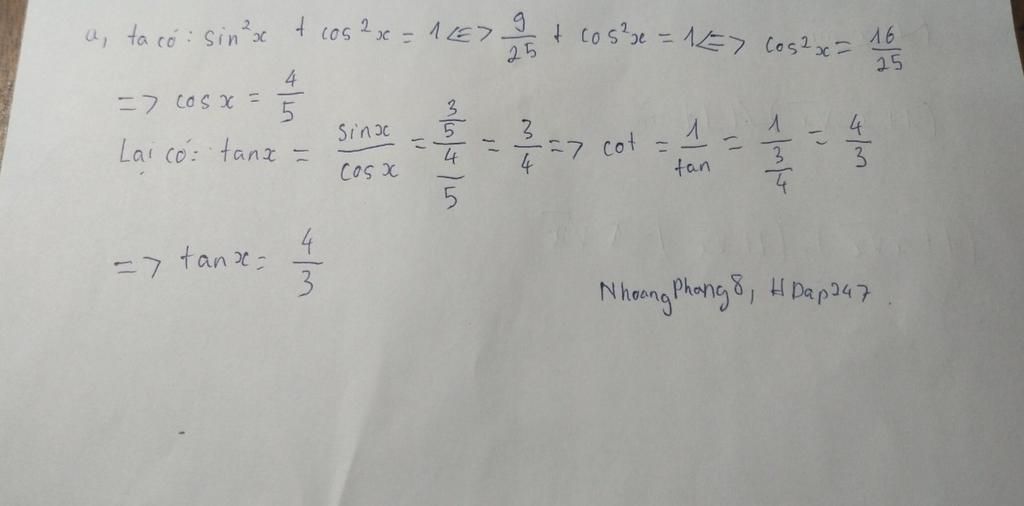 a, ta có: sin²x + cos²x = 1 <=> 9/25 + cos²x = 1 <=> cos²x = 16/25
=> cos x = 4/5
Lại có: tanx = sinx/cosx = (3/5)/(4/5) = 3/4 => cot = 1/tan = 1/(3/4) = 4/3
=> tanx = 4/3
NhoangPhong8, HDap247.